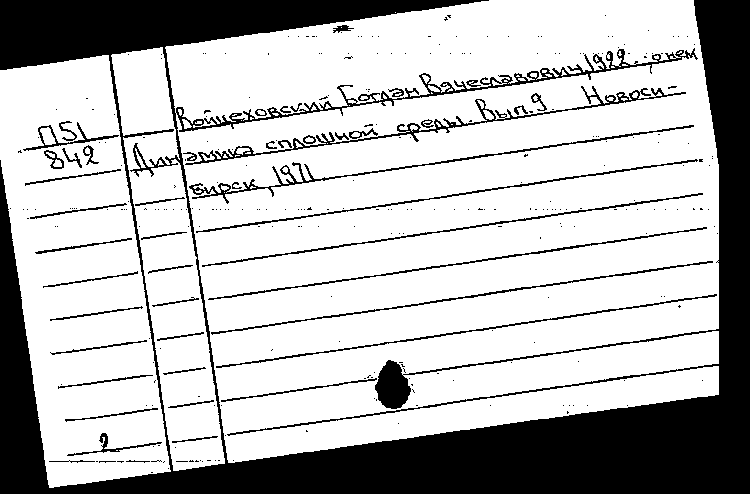 Войцеховский, Богдан Вячеславович, 1922.. ; о нем
П51
842 Динамика сплошной среды. Вып.9 Новоси-
бирск, 1971.
2